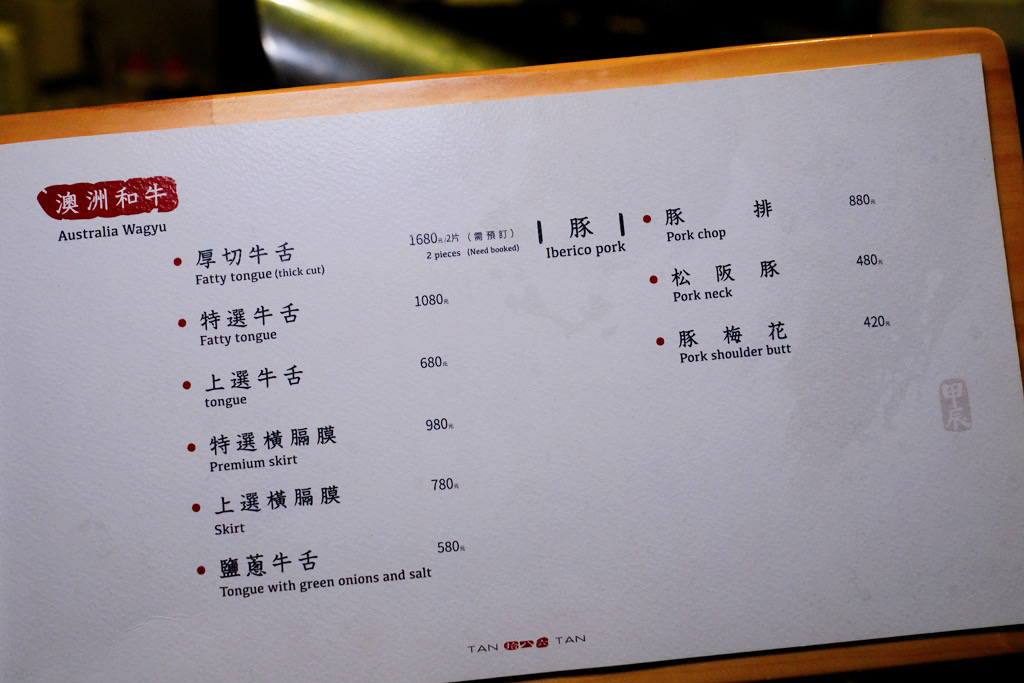 澳洲和牛
Australia Wagyu
厚切牛舌 1680元/2片（需預訂）
Fatty tongue (thick cut) 2 pieces (Need booked)
特選牛舌 1080元
Fatty tongue
上選牛舌 680元
tongue
特選橫膈膜 980元
Premium skirt
上選橫膈膜 780元
Skirt
鹽蔥牛舌 580元
Tongue with green onions and salt
豚
Iberico pork
豚排 880元
Pork chop
松阪豚 480元
Pork neck
豚梅花 420元
Pork shoulder butt
甲辰
TAN TAN